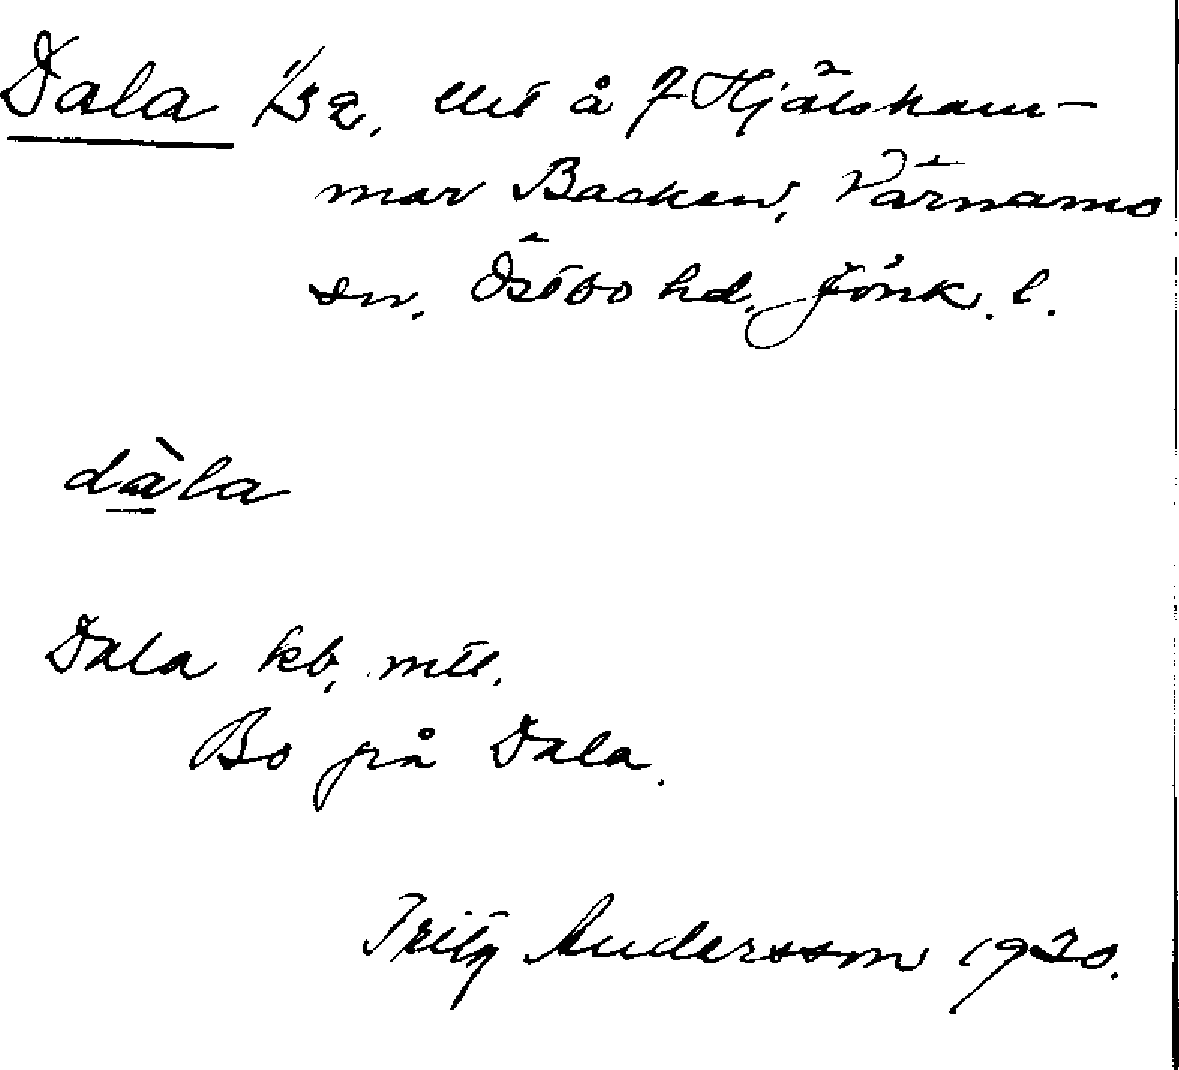 Dala 1/32, utt å f Hjälsham-
mar Backen, Värnamo
sn, Östbo hd, Jönk. l.
dàla
Dala kb, mtl.
Bo på Dala.
Fritz Andersson 1920.